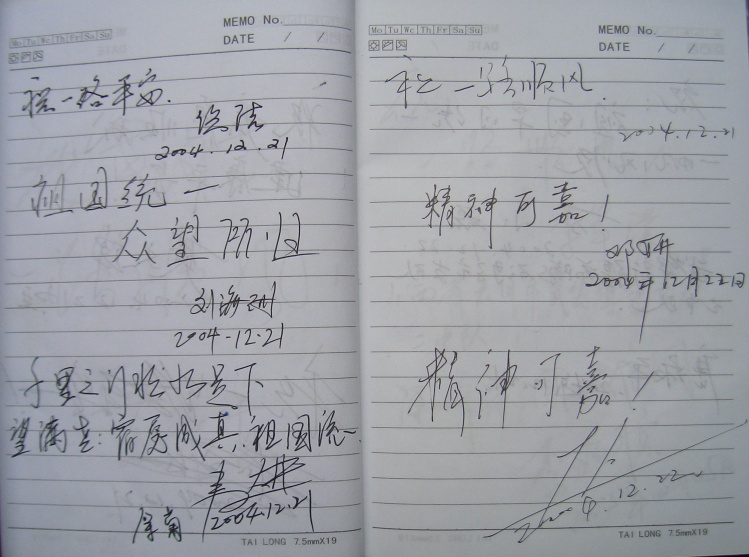 MEMO No.
Mo Tu We Th Fr Sa Su
DATE / /
祝一路平安.
2004.12.21
祖国统一
众望所归
刘海洲
2004.12.21
千里之行始于足下
望满意:宿愿成真.祖国统一
2004.12.21
MEMO No.
Mo Tu We Th Fr Sa Su
DATE / /
祝一路顺风
2004.12.21
精神可嘉!
邓研
2004年12月22日
精神可嘉!
2004.12.22
TAI LONG 7.5mmX19
TAI LONG 7.5mmX19